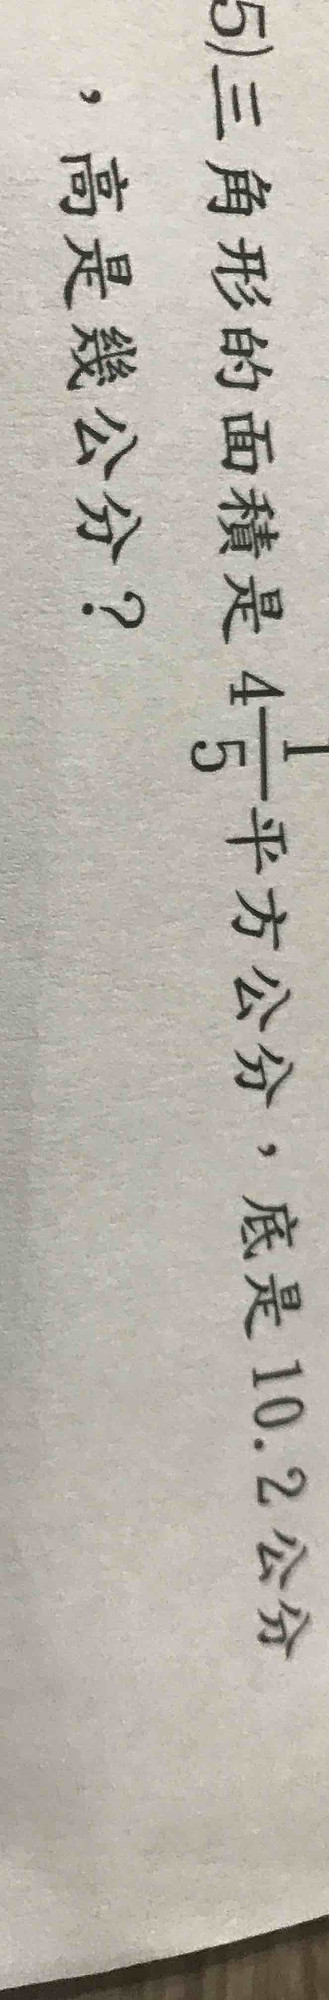 5)三角形的面積是4 1/5平方公分，底是10.2公分
，高是幾公分？